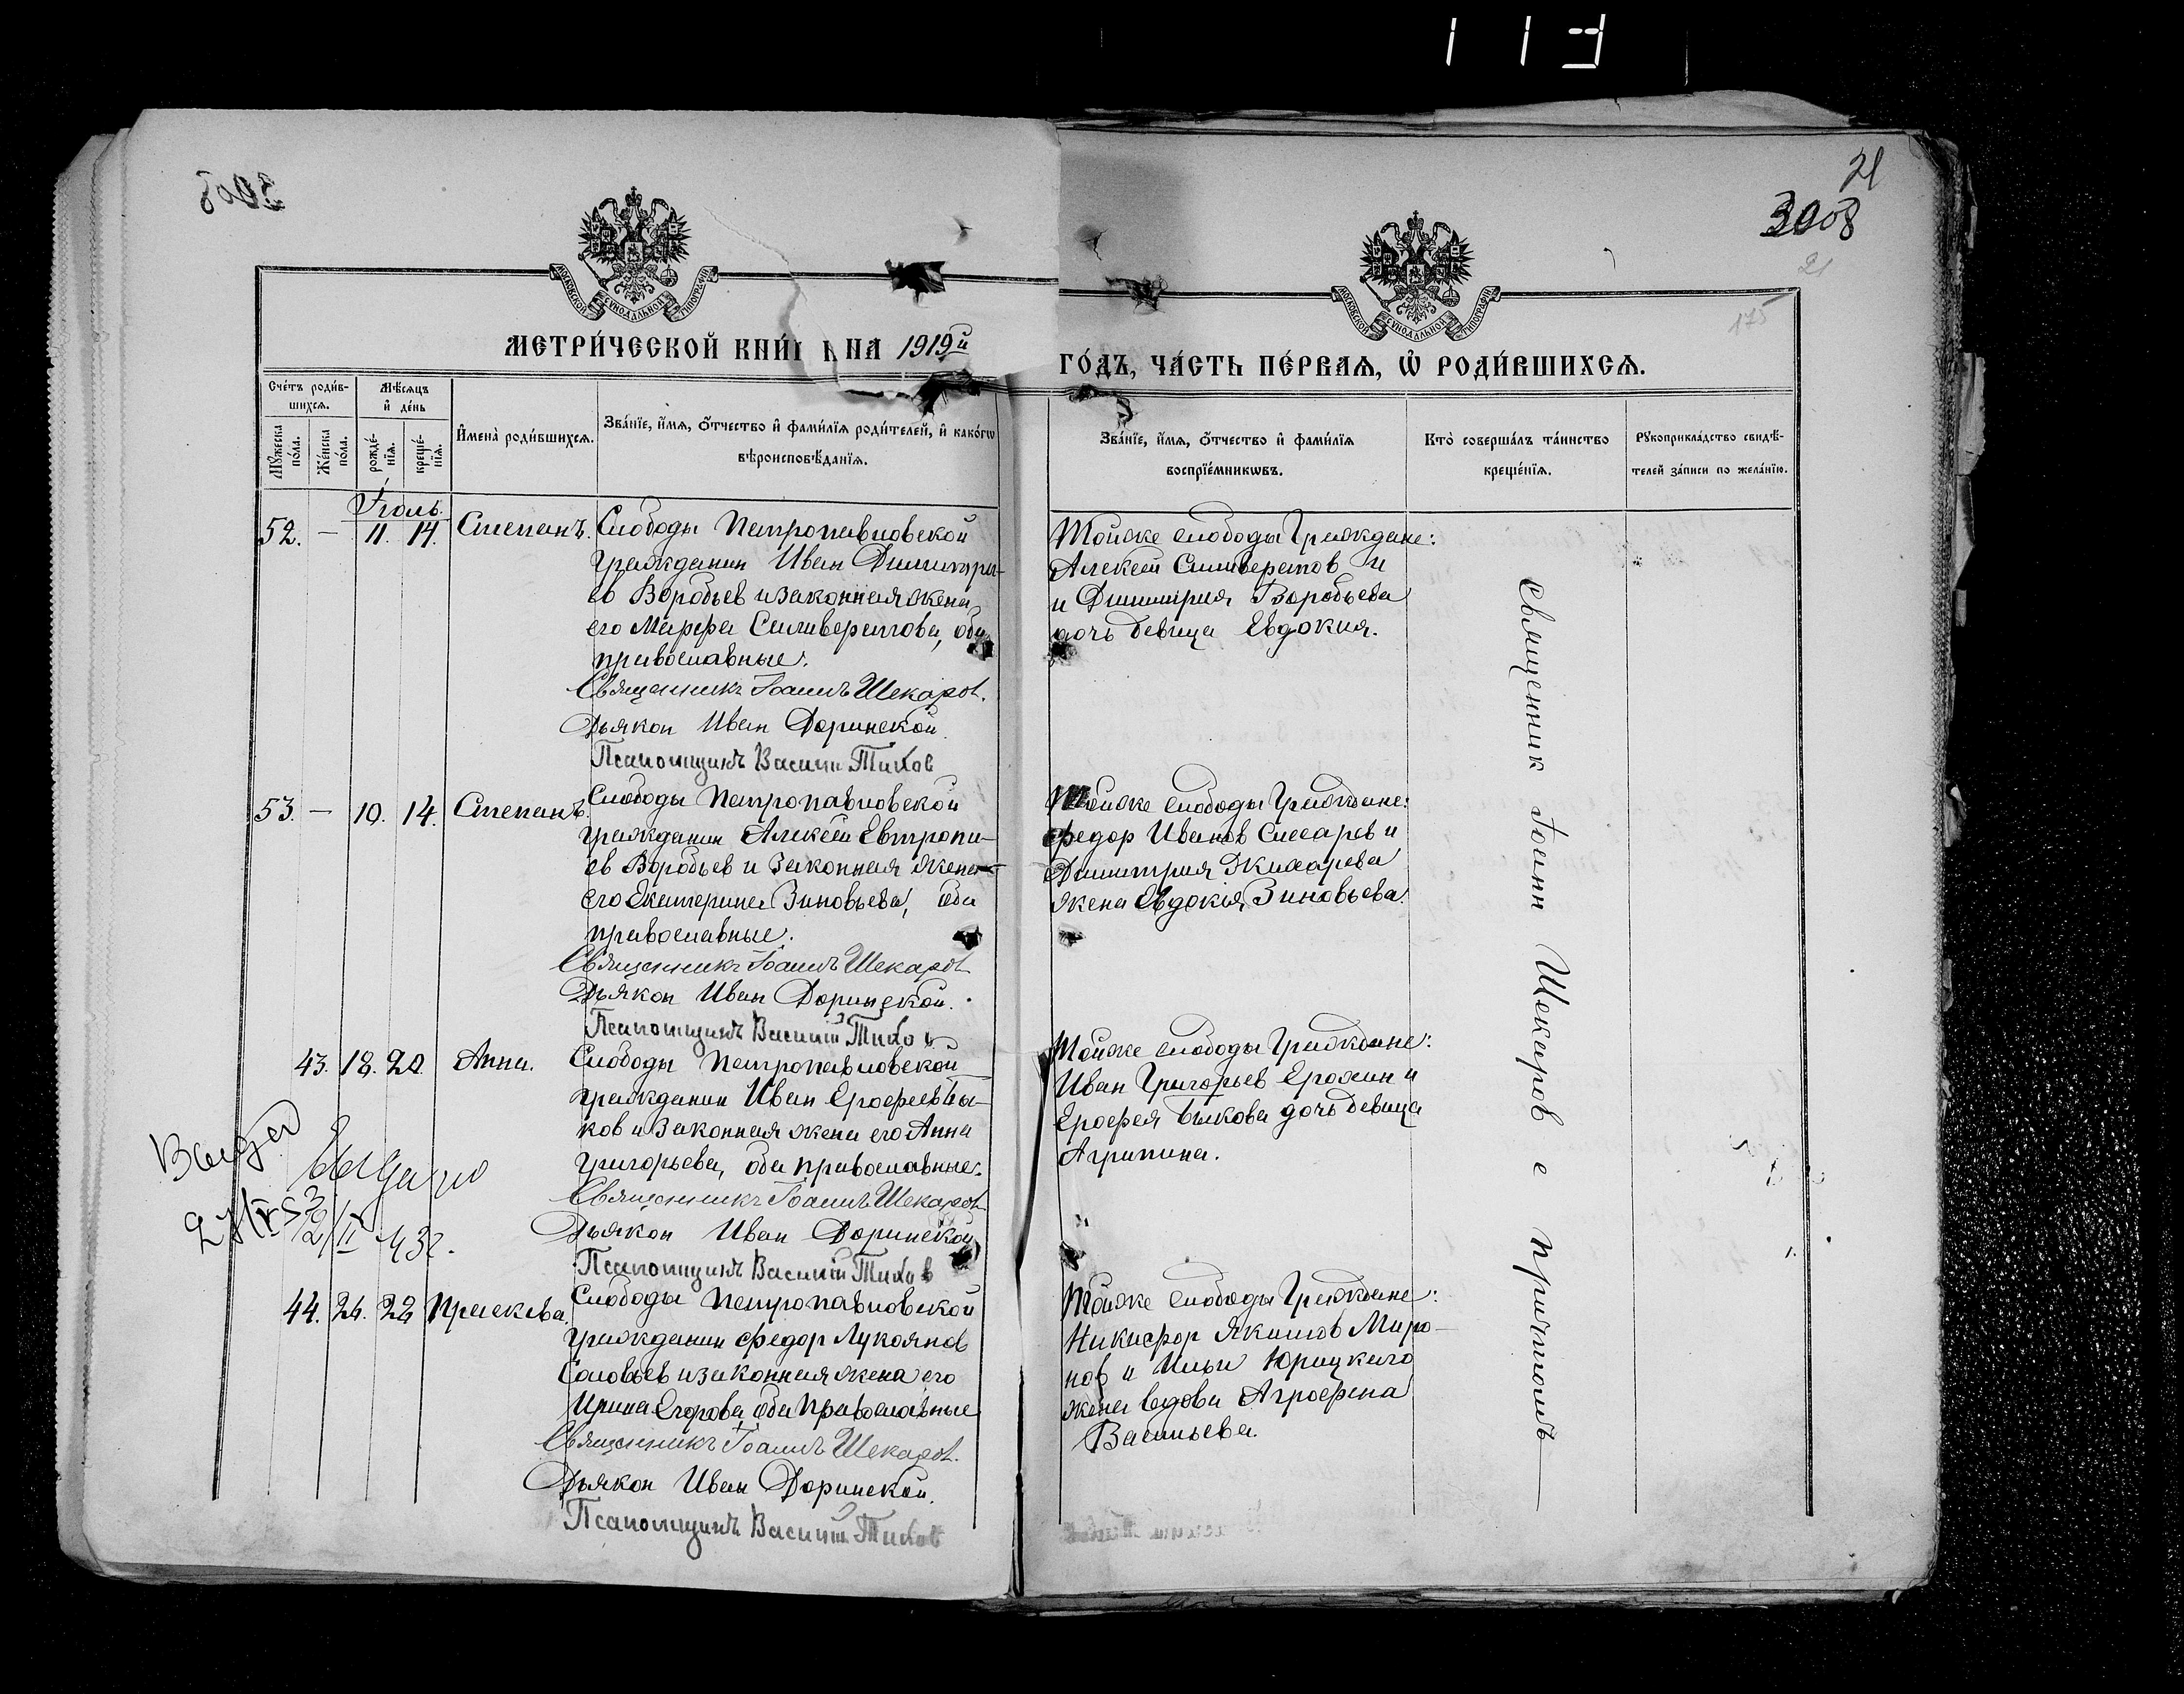 21
3008
21
175
МОСКОВСКОЙ СѴНОДАЛЬНОЙ ТИПОГРАФІИ
МОСКОВСКОЙ СѴНОДАЛЬНОЙ ТИПОГРАФІИ
МЕТРИ́ЧЕСКОЙ КНИ́ НА 1919й
ГО́ДЪ, ЧА́СТЬ ПЕ́РВАѦ, Ѡ҆ РОДИ́ВШИХСѦ.
Сче́тъ роди́в-
шихсѧ.
Мꙋ́жеска по́ла.
Же́нска по́ла.
Мѣ́сѧцъ
и҆ де́нь
рожде́-
нїѧ.
креще́-
нїѧ.
И҆мена̀ роди́вшихсѧ.
Зва́нїе, и҆́мѧ, ѻ҆́тчество и҆ фами́лїѧ роди́телей, и҆ како́гѡ
вѣроисповѣ́данїѧ.
Зва́нїе, и҆́мѧ, ѻ҆́тчество и҆ фами́лїѧ
воспрїе́мникѡвъ.
Кто̀ соверша́лъ та́инство
креще́нїѧ.
Рꙋкоприкла́дство свидѣ́-
телей за́писи по жела́нїю.
Іюль.
52. — 11. 14. Степанъ.
Слободы Петропавловской
гражданин Иван Димитри-
ев Воробьев и законная жена
его Марфа Силиверстова, оба
православные.
Священникъ Іоаннъ Шекаров.
Дьякон Иван Доринской.
Псаломщикъ Василий Тихов
Тойже слободы Граждане:
Алексей Силиверстов и
и Димитрия Воробьева
дочь девица Евдокия.
53. — 10. 14. Степанъ.
Слободы Петропавловской
гражданин Алексей Евтропи-
ев Воробьев и законная жена
его Екатерина Зиновьева, оба
православные.
Священникъ Іоаннъ Шекаров
Дьякон Иван Доринской.
Псаломщикъ Василий Тихов
Тойже слободы Граждане:
Федор Иванов Слесарев и
Димитрия Жихарева
жена Евдокія Зиновьева.
43. 18. 20. Анна.
Слободы Петропавловской
гражданин Иван Ерофеев Бы-
ков и законная жена его Анна
Григорьева, оба православные.
Священникъ Іоаннъ Шекаров
Дьякон Иван Доринской
Псаломщикъ Василий Тихов
Тойже слободы Граждане:
Иван Григорьев Ерохин и
Ерофея Быкова дочь девица
Агрипина.
44. 26. 28 Праскева.
Слободы Петропавловской
гражданин Федор Лукоянов
Соловьев и законная жена его
Ирина Егорова, оба православные
Священникъ Іоаннъ Шекаров.
Дьякон Иван Доринской.
Псаломщикъ Василий Тихов
Тойже слободы Граждане:
Никифор Якимов Миро-
нов и Ильи Юрицкаго
жена вдова Агрофена
Васильева.
Священник Іоанн Шекаров с причтомъ